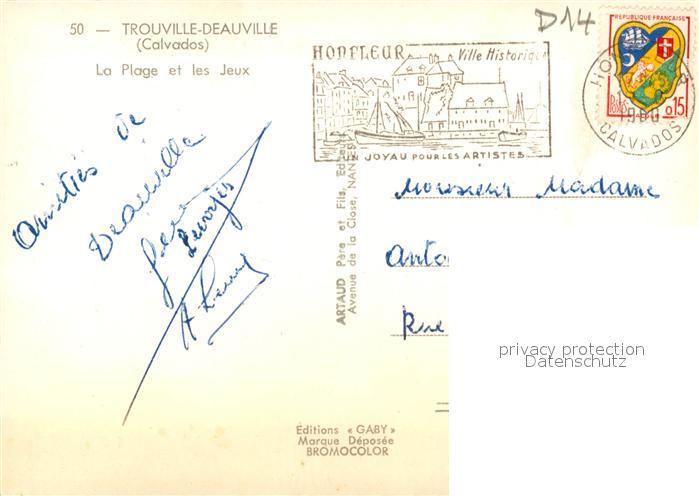 50 — TROUVILLE-DEAUVILLE
(Calvados)
La Plage et les Jeux
D14
HONFLEUR Ville Historique
UN JOYAU POUR LES ARTISTES
REPUBLIQUE FRANÇAISE
POSTES 0,15
HONFLEUR
CALVADOS
amitiés de
Deauville
ARTAUD Père et Fils, Editeurs
Avenue de la Close, NANTES
Monsieur Madame
Anto
Rue
privacy protection
Datenschutz
Éditions « GABY »
Marque Déposée
BROMOCOLOR